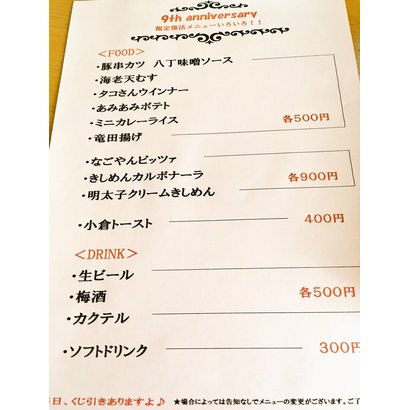 9th anniversary
限定復活メニューいろいろ！！
＜FOOD＞
・豚串カツ 八丁味噌ソース
・海老天むす
・タコさんウインナー
・あみあみポテト
・ミニカレーライス 各500円
・竜田揚げ
・なごやんピッツァ
・きしめんカルボナーラ 各900円
・明太子クリームきしめん
・小倉トースト 400円
＜DRINK＞
・生ビール
・梅酒 各500円
・カクテル
・ソフトドリンク 300円
日、くじ引きありますよ♪ ★場合によっては告知なしでメニューの変更がございます。ご了